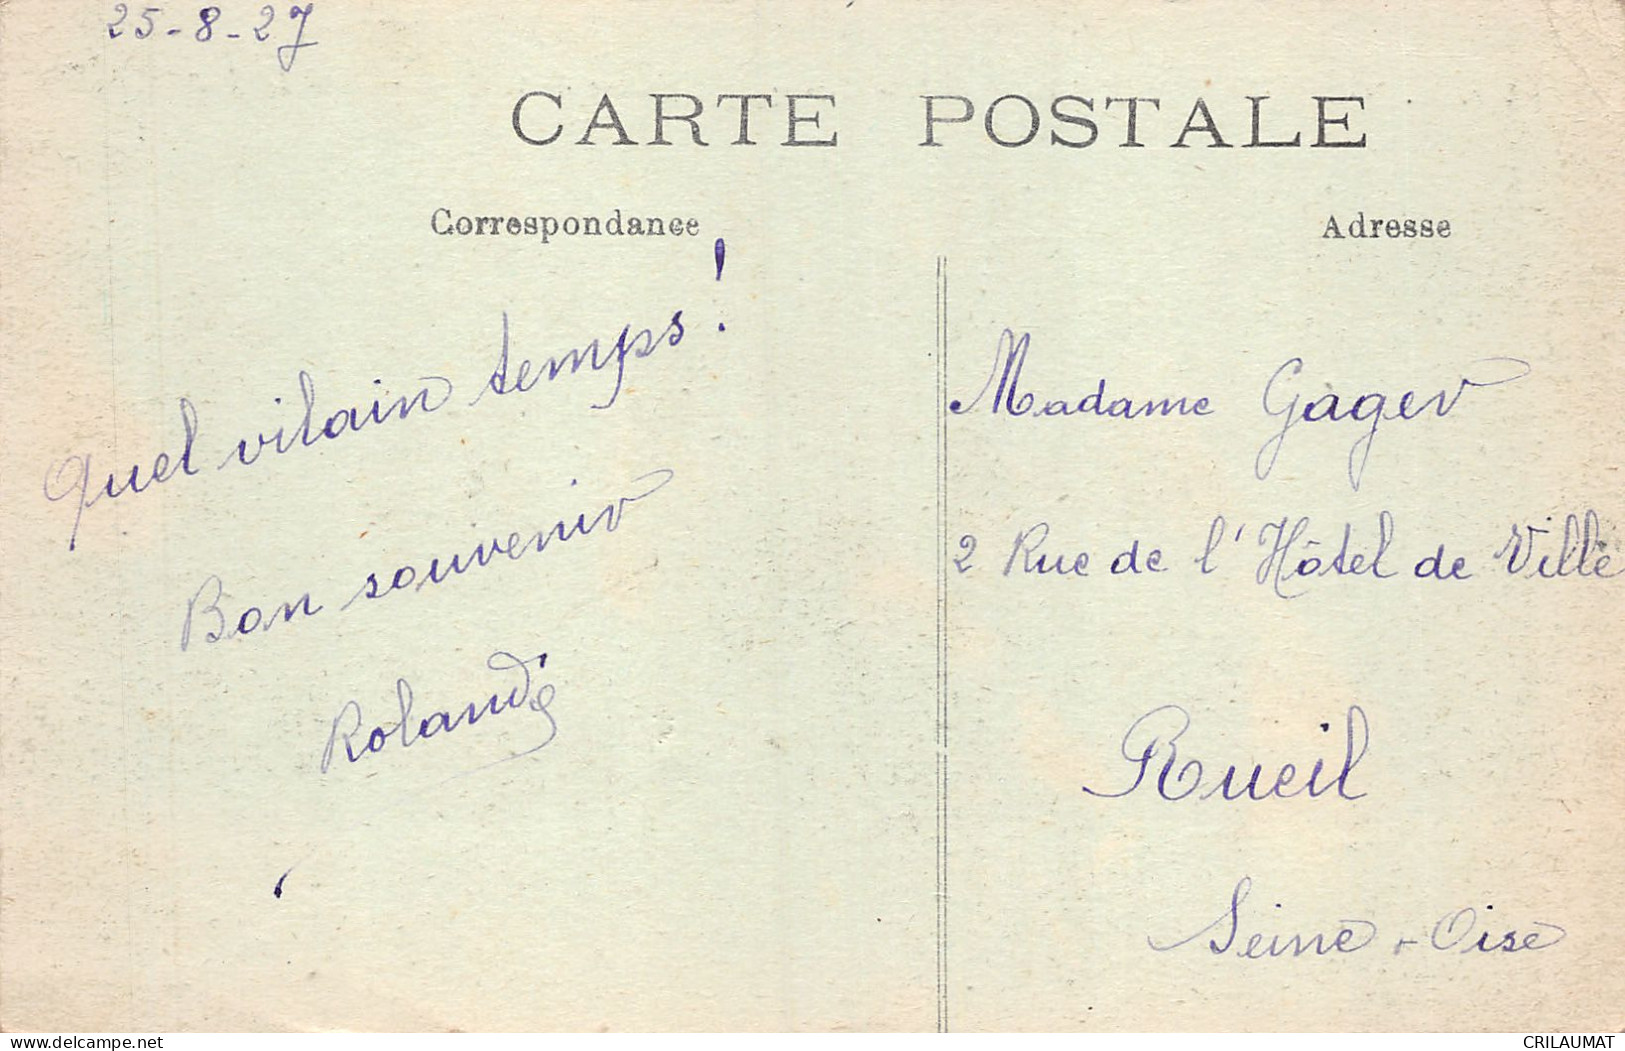 25-8-27
CARTE POSTALE
Correspondance
Adresse
Quel vilain temps!
Bon souvenir
Rolande
Madame Gager
2 Rue de l'Hôtel de Ville
Rueil
Seine-Oise
www.delcampe.net
CRILAUMAT